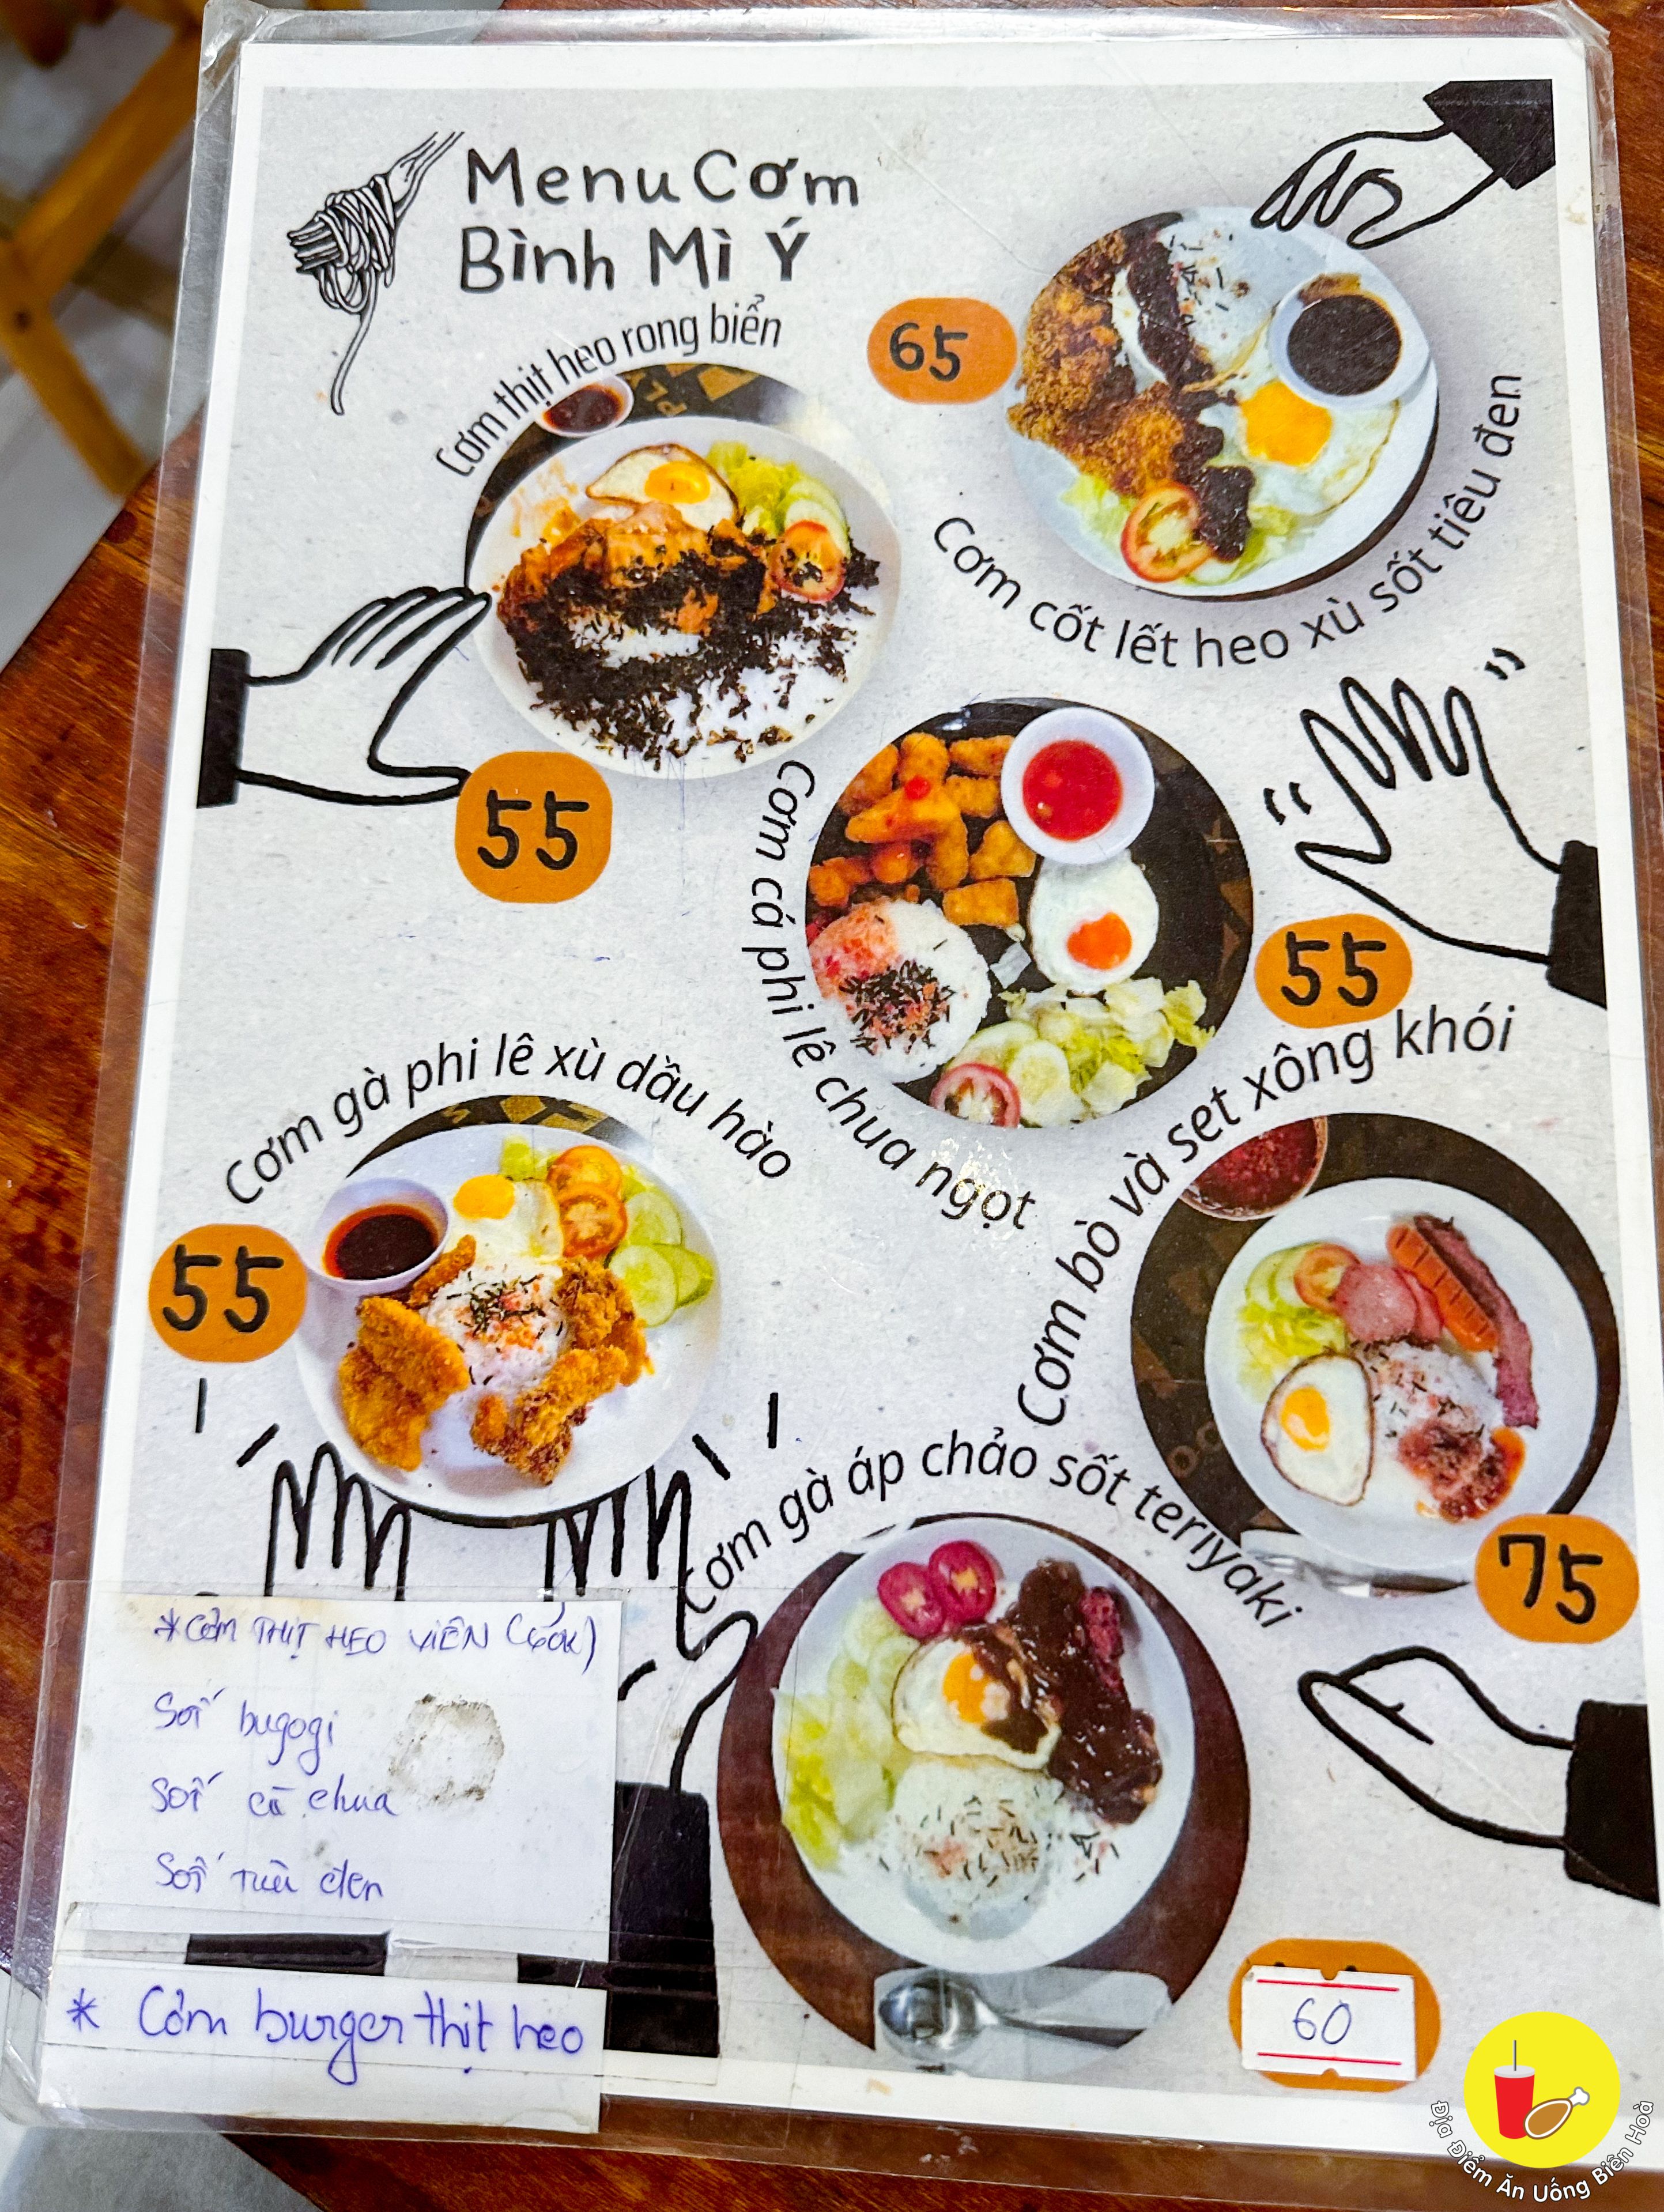 Menu Cơm
Bình Mì Ý
Cơm thịt heo rong biển
55
65
Cơm cốt lết heo xù sốt tiêu đen
Cơm cá phi lê chua ngọt
55
Cơm gà phi lê xù dầu hào
55
Cơm bò và set xông khói
75
Cơm gà áp chảo sốt teriyaki
60
*CƠM THỊT HEO VIÊN
Sốt bugogi
Sốt cà chua
Sốt tiêu đen
* Cơm burger thịt heo
Địa Điểm Ăn Uống Biên Hoà